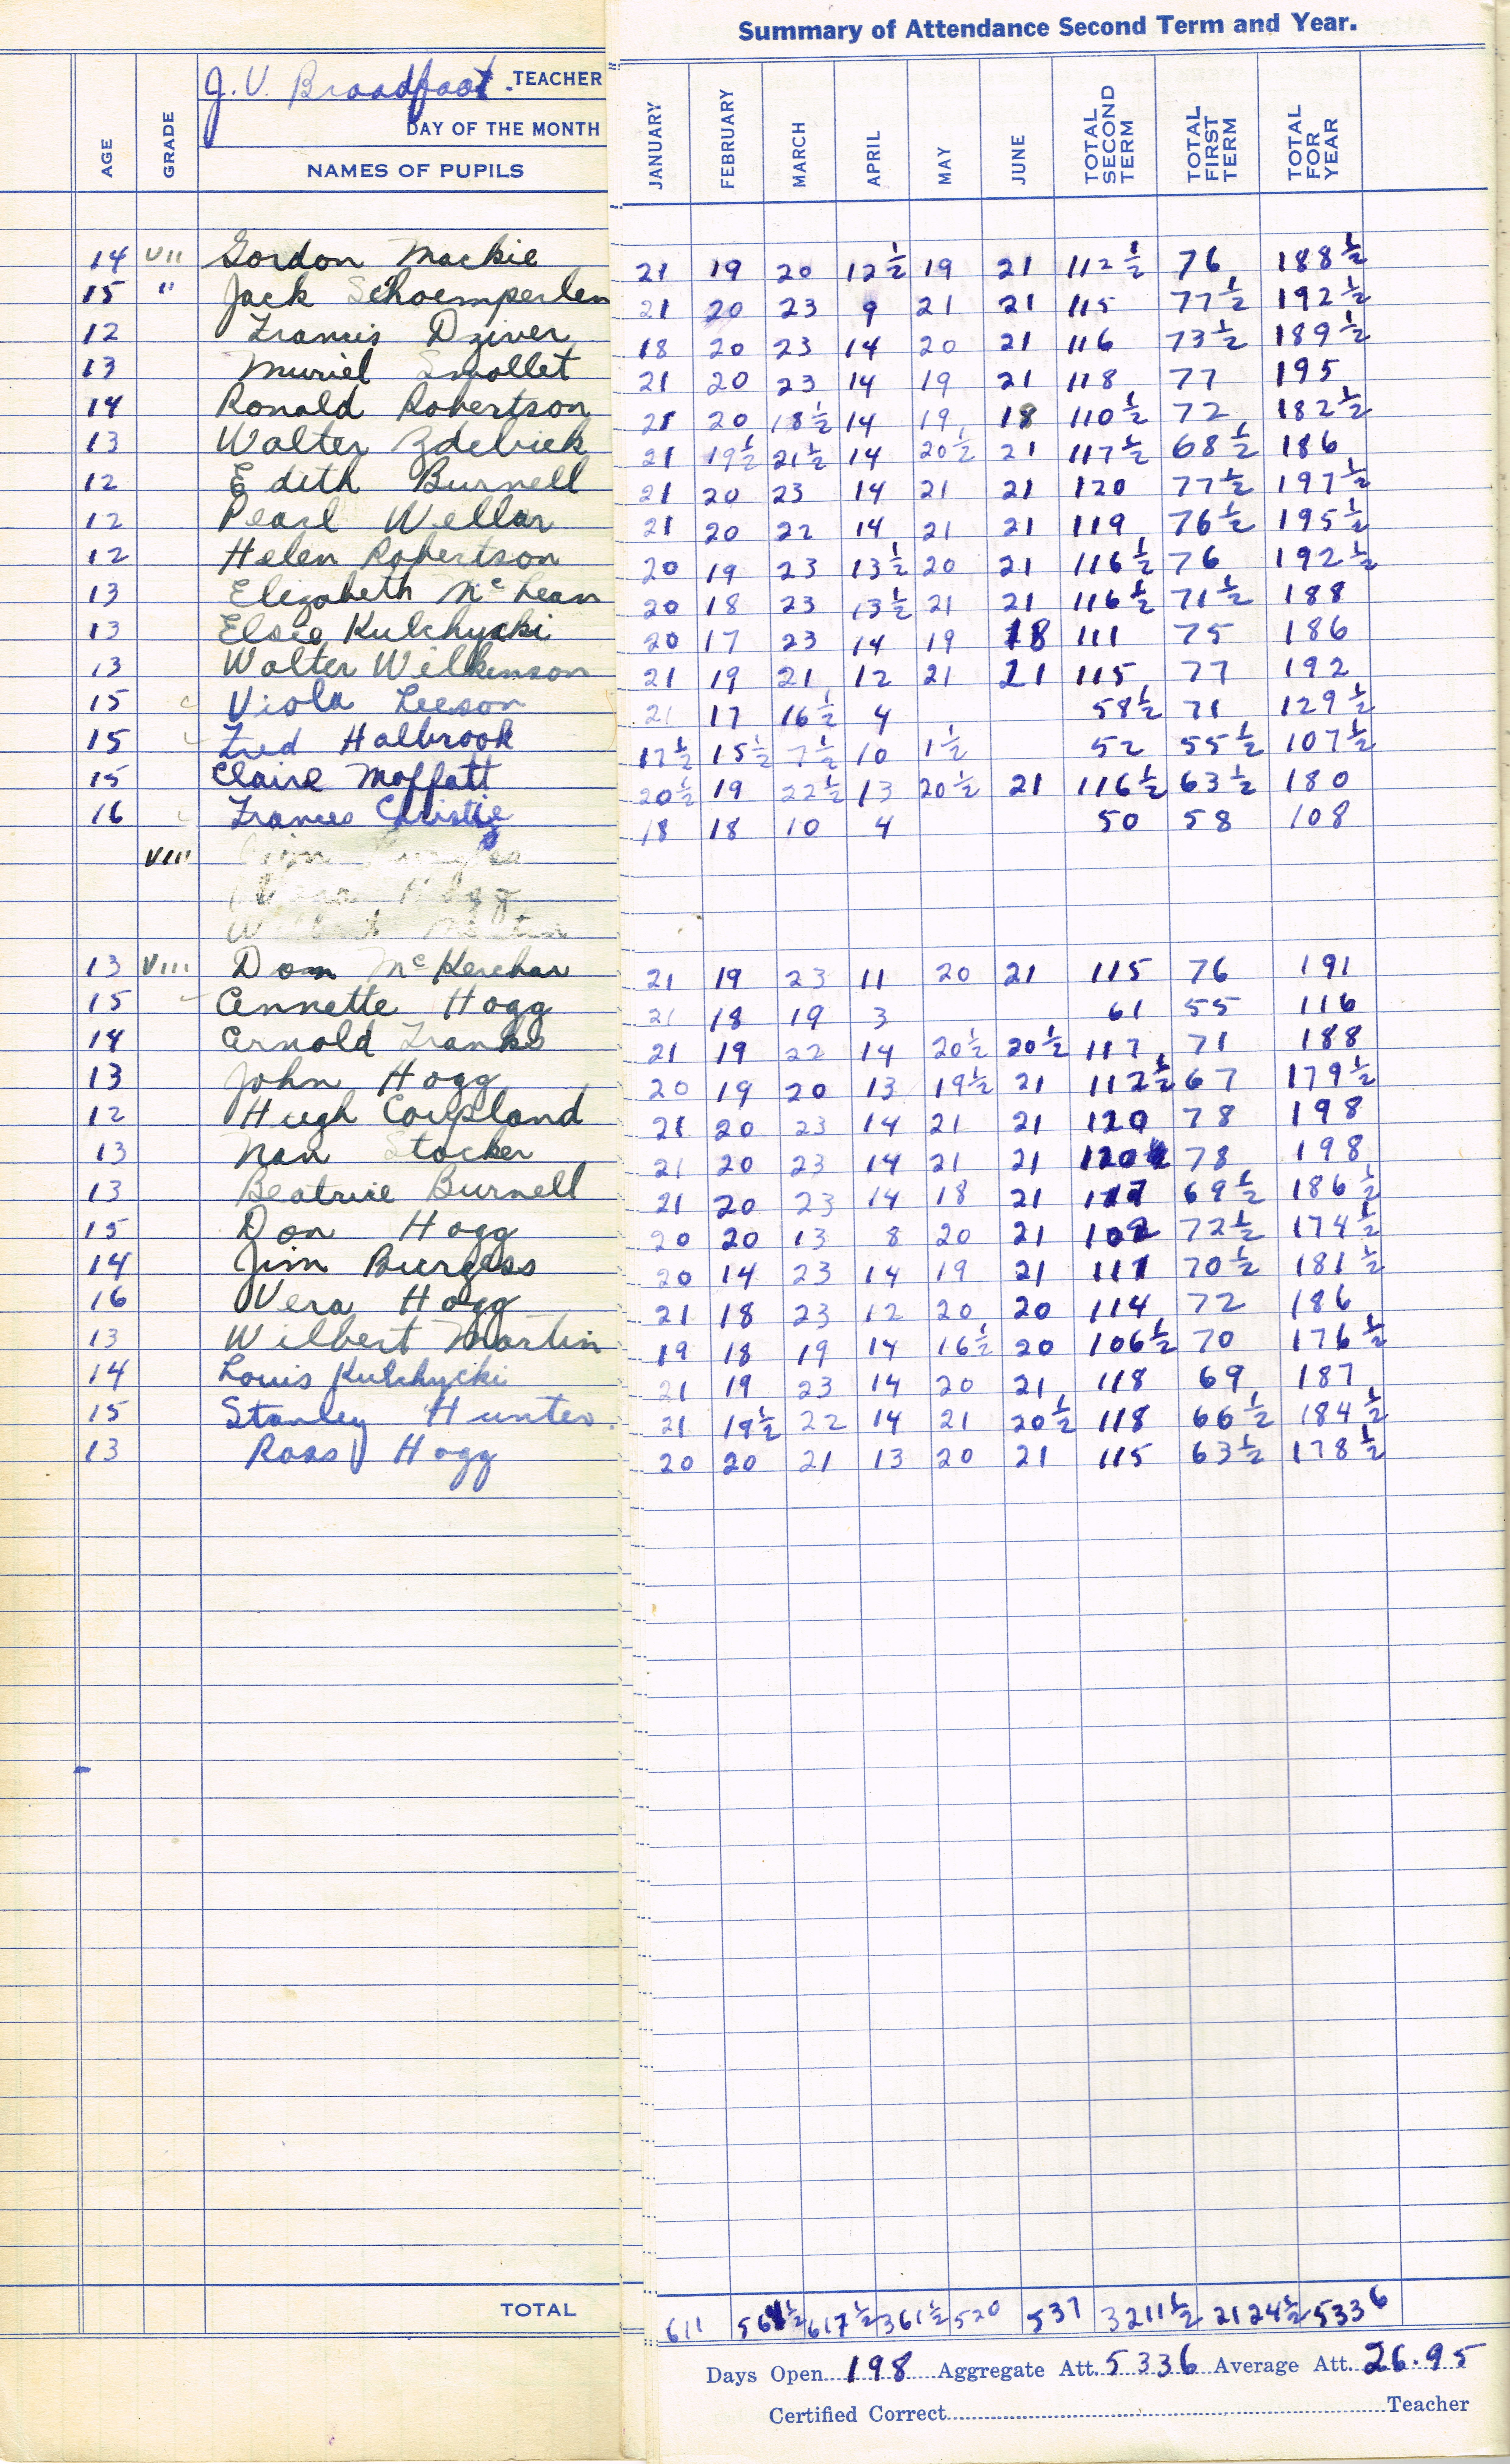 Summary of Attendance Second Term and Year.
J. V. Broadfoot. TEACHER
DAY OF THE MONTH
AGE GRADE NAMES OF PUPILS JANUARY FEBRUARY MARCH APRIL MAY JUNE TOTAL SECOND TERM TOTAL FIRST TERM TOTAL FOR YEAR
14 VII Gordon Mackie 21 19 20 12½ 19 21 112½ 76 188½
15 " Jack Schoemperlen 21 20 23 9 21 21 115 77½ 192½
12 Francis Dziver 18 20 23 14 20 21 116 73½ 189½
13 Muriel Smollet 21 20 23 14 19 21 118 77 195
14 Ronald Robertson 21 20 18½ 14 19 18 110½ 72 182½
13 Walter Zdebiek 21 19½ 21½ 14 20½ 21 117½ 68½ 186
12 Edith Burnell 21 20 23 14 21 21 120 77½ 197½
12 Pearl Wellar 21 20 22 14 21 21 119 76½ 195½
12 Helen Robertson 20 19 23 13½ 20 21 116½ 76 192½
13 Elizabeth McLean 20 18 23 13½ 21 21 116½ 71½ 188
13 Elsie Kulchycki 20 17 23 14 19 18 111 75 186
13 Walter Wilkinson 21 19 21 12 21 21 115 77 192
15 Viola Leeson 21 17 16½ 4 58½ 71 129½
15 Fred Halbrook 17½ 15½ 7½ 10 1½ 52 55½ 107½
15 Claire Moffatt 20½ 19 22½ 13 20½ 21 116½ 63½ 180
16 Frances Christie 18 18 10 4 50 58 108
VIII
13 VIII Don McKerchar 21 19 23 11 20 21 115 76 191
15 Annette Hogg 21 18 19 3 61 55 116
14 Arnold Franks 21 19 22 14 20½ 20½ 117 71 188
13 John Hogg 20 19 20 13 19½ 21 112½ 67 179½
12 Hugh Coupland 21 20 23 14 21 21 120 78 198
13 Nan Stocker 21 20 23 14 21 21 120 78 198
13 Beatrice Burnell 21 20 23 14 18 21 117 69½ 186½
15 Don Hogg 20 20 13 8 20 21 102 72½ 174½
14 Jim Burgess 20 14 23 14 19 21 111 70½ 181½
16 Vera Hogg 21 18 23 12 20 20 114 72 186
13 Wilbert Martin 19 18 19 14 16½ 20 106½ 70 176½
14 Louis Kulchycki 21 19 23 14 20 21 118 69 187
15 Stanley Hunter. 21 19½ 22 14 21 20½ 118 66½ 184½
13 Ross Hogg 20 20 21 13 20 21 115 63½ 178½
TOTAL 611 617½ 361½ 520 537 3211½ 2124½ 5336
Days Open 198 Aggregate Att. 5336 Average Att. 26.95
Certified Correct Teacher